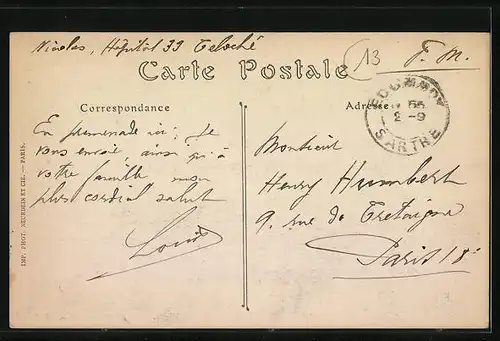 Nicolas, Hôpital 39 Teloché
13
F. M.
Carte Postale
Correspondance
Adresse
ECOMMOY
2-9
SARTHE
En promenade ici, Je
vous envoie ainsi qu'à
votre famille mon
plus cordial salut
Louis
Monsieur
Henry Humbert
9. rue de Tretaigne
Paris 18e
IMP. PHOT. NEURDEIN ET CIE. — PARIS.